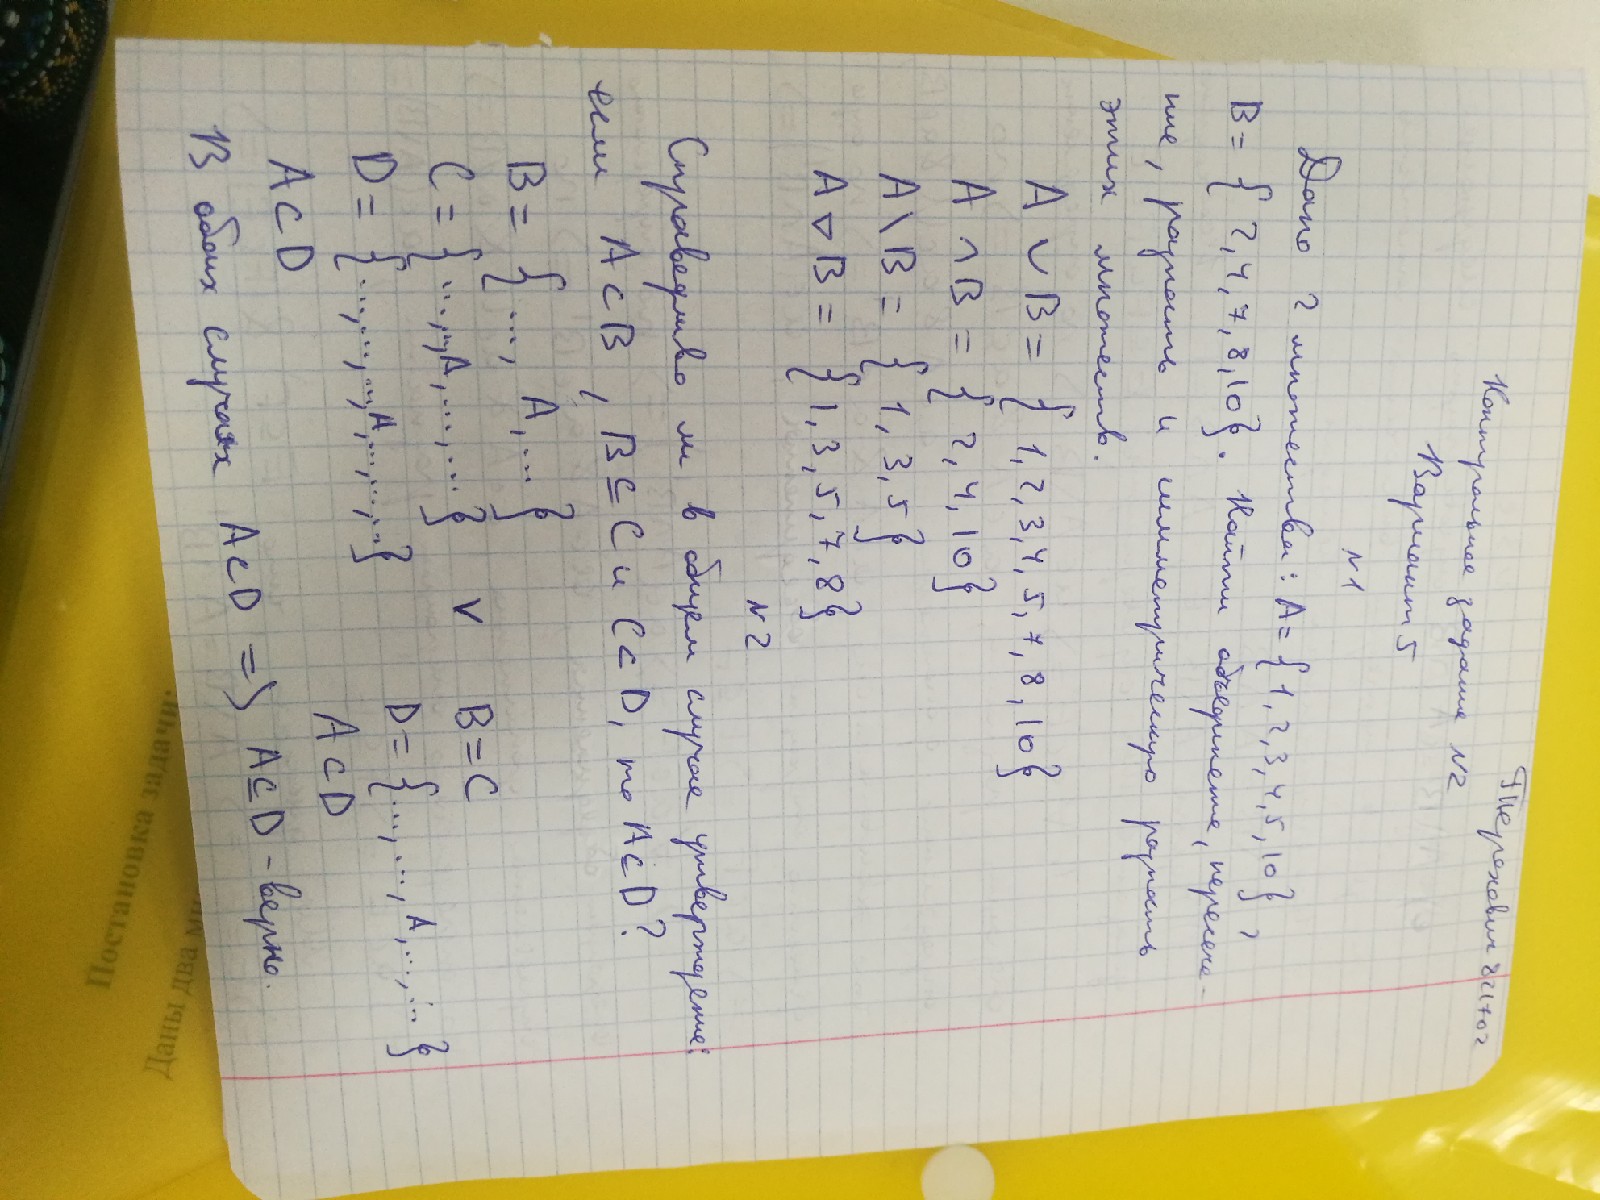 Терехович 821702
Контрольное задание №2
Вариант 5
№1
Дано 2 множества: A = {1, 2, 3, 4, 5, 10},
B = {2, 4, 7, 8, 10}. Найти объединение, пересече-
ние, разность и симметрическую разность
этих множеств.
A ∪ B = {1, 2, 3, 4, 5, 7, 8, 10}
A ∩ B = {2, 4, 10}
A \ B = {1, 3, 5}
A ▽ B = {1, 3, 5, 7, 8}
№2
Справедливо ли в общем случае утверждение:
если A ⊂ B, B ⊆ C и C ⊂ D, то A ⊆ D?
B = {..., A, ...}
C = {..., .., A, ..., ...} ∨ B = C
D = {..., ..., ..., A, ..., ..., ...} D = {..., ..., A, ..., ...}
A ⊂ D A ⊂ D
В обоих случаях A ⊂ D => A ⊆ D - верно.
Даны два
Постановка задачи: